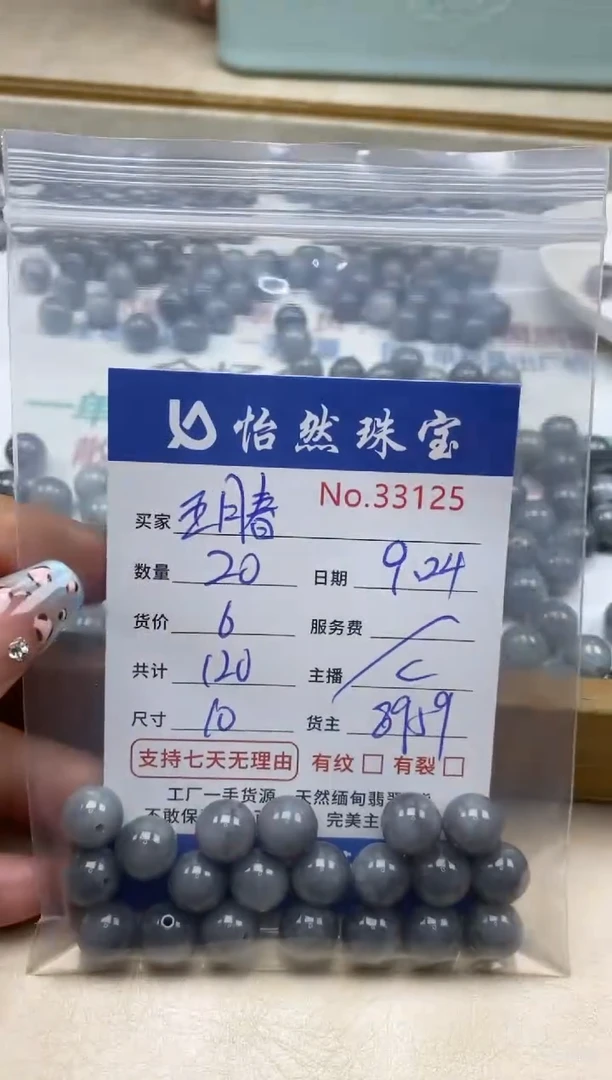 怡然珠宝
No.33125
买家 王月春
数量 20 日期 9.24
货价 6 服务费 /
共计 120 主播 C
尺寸 10 货主 8959
支持七天无理由 有纹 □ 有裂 □
工厂一手货源 天然缅甸翡翠
不敢保 完美主